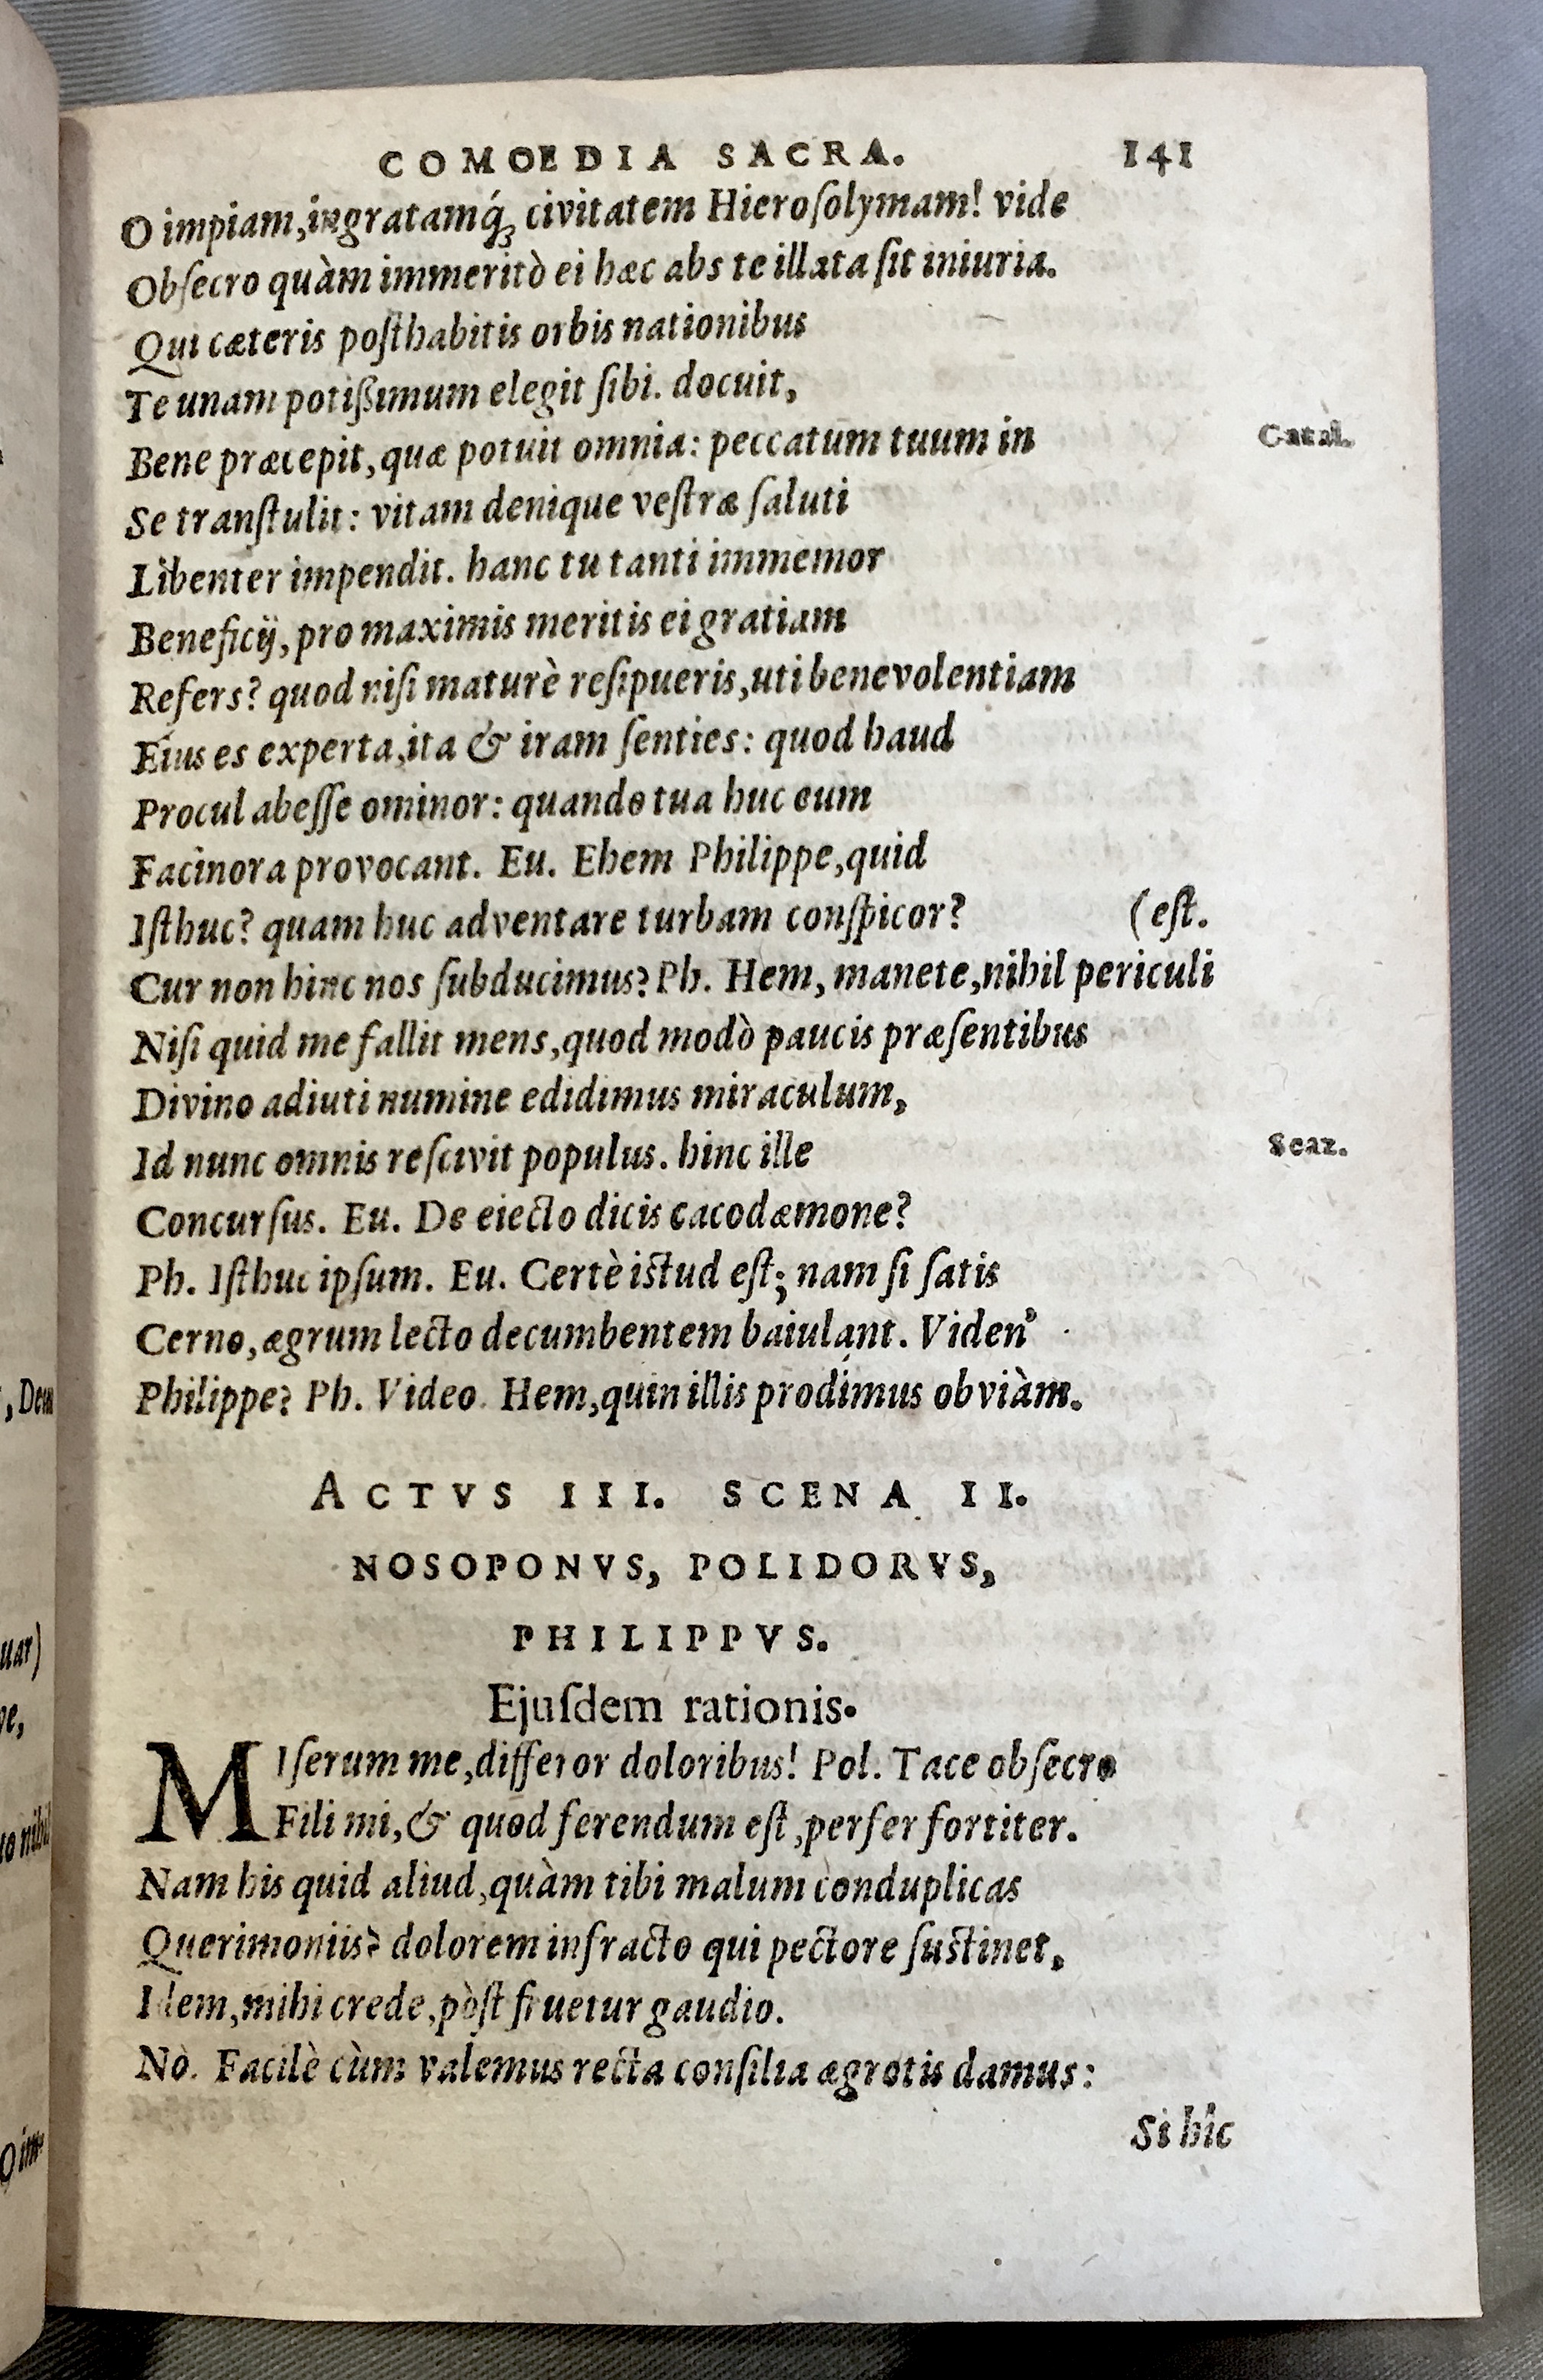 COMOEDIA SACRA. 141
O impiam,ingratamq́ꝫ civitatem Hieroſolymam! vide
Obſecro quàm immeritò ei hæc abs te illata ſit iniuria.
Qui cæteris poſthabitis orbis nationibus
Te unam potißimum elegit ſibi. docuit,
Bene præcepit,quæ potuit omnia: peccatum tuum in
Catal.
Se tranſtulit: vitam denique veſtræ ſaluti
Libenter impendit. hanc tu tanti immemor
Beneficij,pro maximis meritis ei gratiam
Refers? quod niſi maturè reſipueris,uti benevolentiam
Eius es experta,ita & iram ſenties: quod haud
Procul abeſſe ominor: quando tua huc eum
Facinora provocant. Eu. Ehem Philippe,quid
Iſthuc? quam huc adventare turbam conſpicor? (eſt.
Cur non hinc nos ſubducimus? Ph. Hem, manete,nihil periculi
Niſi quid me fallit mens,quod modò paucis præſentibus
Divino adiuti numine edidimus miraculum,
Id nunc omnis reſcivit populus. hinc ille
Scaz.
Concurſus. Eu. De eiecto dicis cacodæmone?
Ph. Iſthuc ipſum. Eu. Certè iſtud eſt; nam ſi ſatis
Cerno,ægrum lecto decumbentem baiulant. Viden'
Philippe? Ph. Video. Hem,quin illis prodimus obviàm.
ACTVS III. SCENA II.
NOSOPONVS, POLIDORVS,
PHILIPPVS.
Ejuſdem rationis.
MIſerum me,differor doloribus! Pol. Tace obſecro
Fili mi,& quod ferendum eſt,perfer fortiter.
Nam his quid aliud,quàm tibi malum conduplicas
Querimoniis? dolorem infracto qui pectore ſuſtinet,
Idem,mihi crede,pòſt fruetur gaudio.
No. Facilè cùm valemus recta conſilia ægrotis damus:
Si hîc